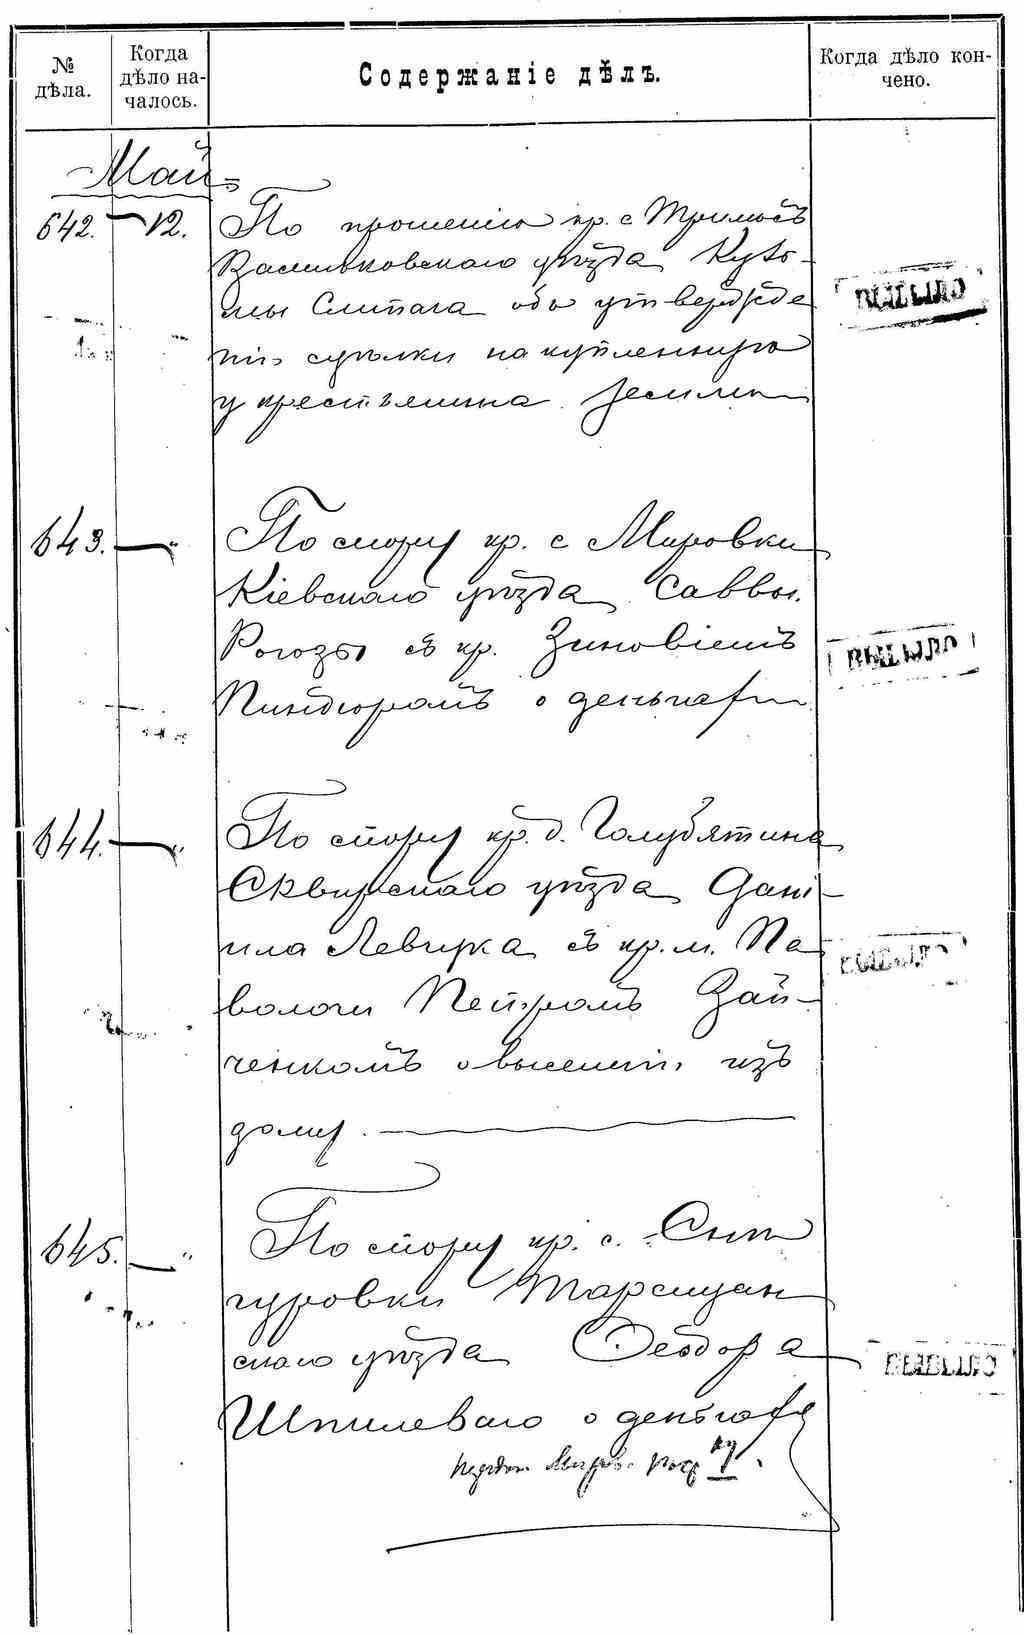 № дѣла.
Когда дѣло на-
чалось.
Содержаніе дѣлъ.
Когда дѣло кон-
чено.
Май
642. 12. По прошенію кр. с Трилѣсъ
Васильковскаго уѣзда Кузь-
мы Слипага объ утвержде
ніи сдѣлки на купленную
у крестьянина землю
ВЫБЫЛО
643. — " По спору кр. с Мировки
Кіевскаго уѣзда Саввы
Рогозы съ кр. Зиновіемъ
Пиндюромъ о деньгахъ
ВЫБЫЛО
644. — " По спору кр. д. Голубятина
Сквирскаго уѣзда Дані-
ила Левчука съ кр. м. Па
волочи Петромъ Зай-
ченкомъ о выселеніи изъ
дому.
ВЫБЫЛО
645. — " По спору кр. с.
гуровки Таращан
скаго уѣзда Ѳеодора
Шпилеваго о деньгахъ
ВЫБЫЛО